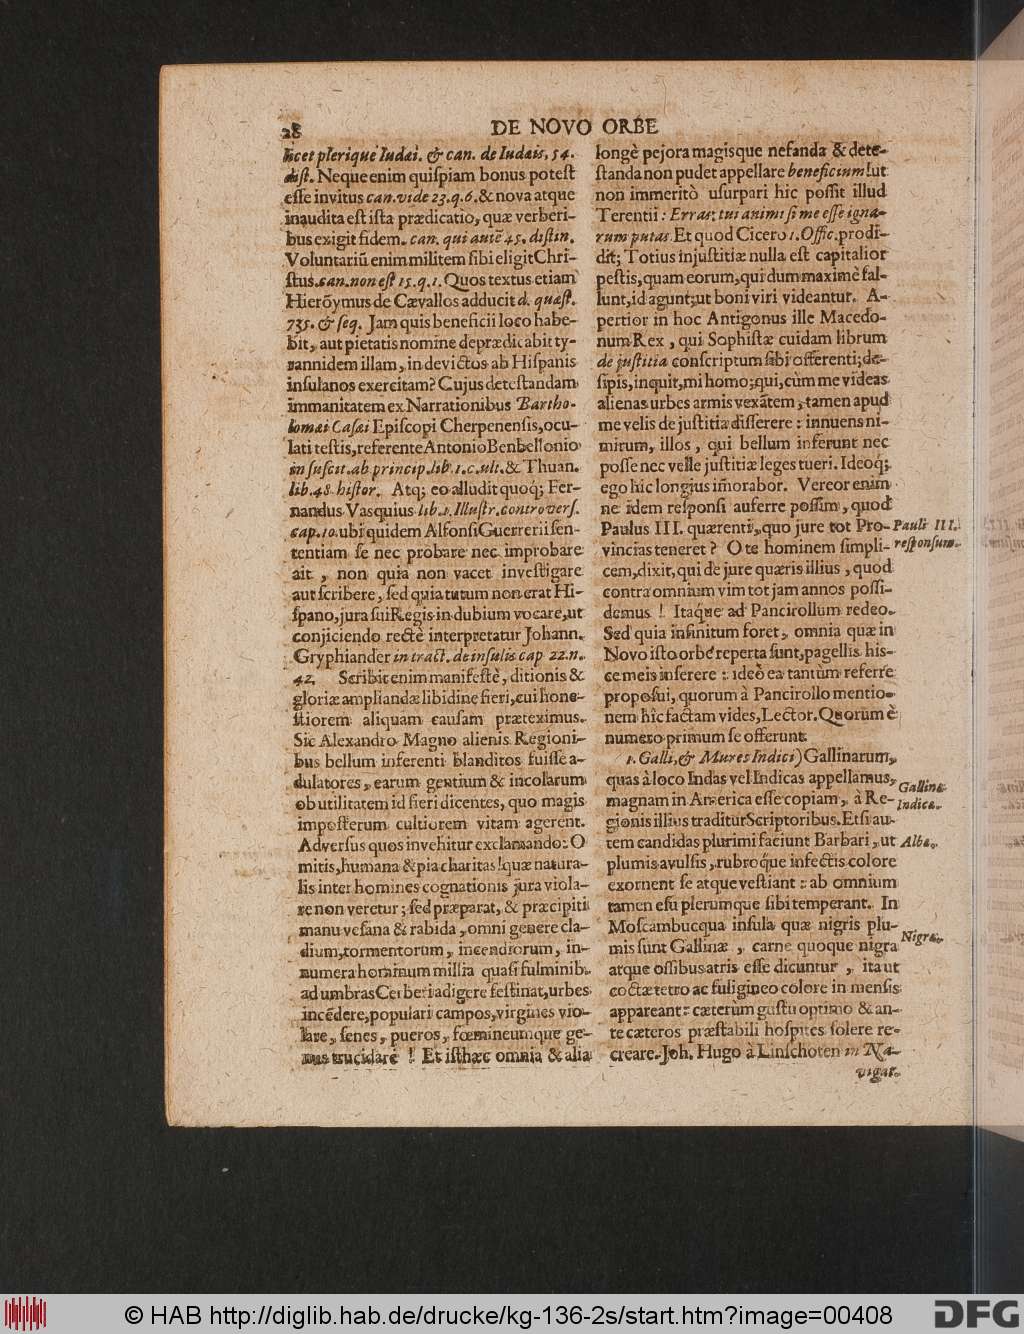 28
DE NOVO ORBE
licet plerique Iudai. & can. de Iudais. 54.
dist. Neque enim quispiam bonus potest
esse invitus can. vide 23. q. 6. & nova atque
inaudita est ista prædicatio, quæ verberi-
bus exigit fidem. can. qui autē 45. distin.
Voluntariū enim militem sibi eligit Chri-
stus. can. non est 15. q. 1. Quos textus etiam
Hierōymus de Cævallos adducit d. quæst.
735. & seq. Jam quis beneficii loco habe-
bit, aut pietatis nomine deprædicabit ty-
rannidem illam, in devictos ab Hispanis
insulanos exercitam? Cujus detestandam
immanitatem ex Narrationibus Bartho-
lomæi Casæi Episcopi Cherpenensis, ocu-
lati testis, referente Antonio Benbellonio
in suscit. ab princip. lib. 1. c. ult. & Thuan.
lib. 48. histor. Atq; eo alludit quoq; Fer-
nandus Vasquius lib. 1. Illustr. controvers.
cap. 10. ubi quidem Alfonsi Guererii sen-
tentiam se nec probare nec improbare
ait, non quia non vacet investigare
aut scribere, sed quia tutum non erat Hi-
spano, jura sui Regis in dubium vocare, ut
conjiciendo rectè interpretatur Johann.
Gryphiander in tract. de insulis cap 22. n.
42. Scribit enim manifestè, ditionis &
gloriæ ampliandæ libidine fieri, cui hone-
stiorem aliquam causam præteximus.
Sic Alexandro Magno alienis Regioni-
bus bellum inferenti blanditos fuisse a-
dulatores, earum gentium & incolarum
ob utilitatem id fieri dicentes, quo magis
imposterum cultiorem vitam agerent.
Adversus quos invehitur exclamando: O
mitis, humana & pia charitas! quæ natura-
lis inter homines cognationis jura viola-
re non veretur; sed præparat, & præcipiti
manu vesana & rabida, omni genere cla-
dium, tormentorum, incendiorum, in-
numera hominum millia quasi fulminib.
ad umbras Cerberi adigere festinat, urbes
incēdere, populari campos, virgines vio-
lare, senes, pueros, fœmineumque ge-
nus trucidare! Et isthæc omnia & alia
longè pejora magisque nefanda & dete-
standa non pudet appellare beneficium! ut
non immeritò usurpari hic possit illud
Terentii: Erras; tui animi si me esse igna-
rum putas. Et quod Cicero 1. Offic. prodi-
dit; Totius injustitiæ nulla est capitalior
pestis, quam eorum, qui dum maximè fal-
lunt, id agunt; ut boni viri videantur. A-
pertior in hoc Antigonus ille Macedo-
num Rex, qui Sophistæ cuidam librum
de justitia conscriptum sibi offerenti; de-
sipis, inquit, mi homo; qui, cùm me videas
alienas urbes armis vexātem, tamen apud
me velis de justitia disserere: innuens ni-
mirum, illos, qui bellum inferunt nec
posse nec velle justitiæ leges tueri. Ideoq;
ego hic longius im̄orabor. Vereor enim
ne idem responsi auferre possim, quod
Paulus III. quærenti, quo jure tot Pro-
vincias teneret? O te hominem simpli-
cem, dixit, qui de jure quæris illius, quod
contra omnium vim tot jam annos possi-
demus! Itaque ad Pancirollum redeo.
Sed quia infinitum foret, omnia quæ in
Novo isto orbe reperta sunt, pagellis his-
ce meis inserere: ideò ea tantùm referre
proposui, quorum à Pancirollo mentio-
nem hîc factam vides, Lector. Quorum è
numero primum se offerunt
1. Galli, & Mures Indici) Gallinarum,
quas à loco Indas vel Indicas appellamus,
magnam in America esse copiam, à Re-
gionis illius traditur Scriptoribus. Etsi au-
tem candidas plurimi faciunt Barbari, ut
plumis avulsis, rubroque infectis colore
exornent se atque vestiant: ab omnium
tamen esu plerumque sibi temperant. In
Moscambucqua insula quæ nigris plu-
mis sunt Gallinæ, carne quoque nigra
atque ossibus atris esse dicuntur, ita ut
coctæ tetro ac fuligineo colore in mensis
appareant: cæterùm gustu optimo & an-
te cæteros præstabili hospites solere re-
creare. Joh. Hugo à Linschoten in Na-
vigat.
Pauli III.
responsum.
Gallinæ
Indicæ.
Albæ.
Nigræ.
© HAB http://diglib.hab.de/drucke/kg-136-2s/start.htm?image=00408
DFG